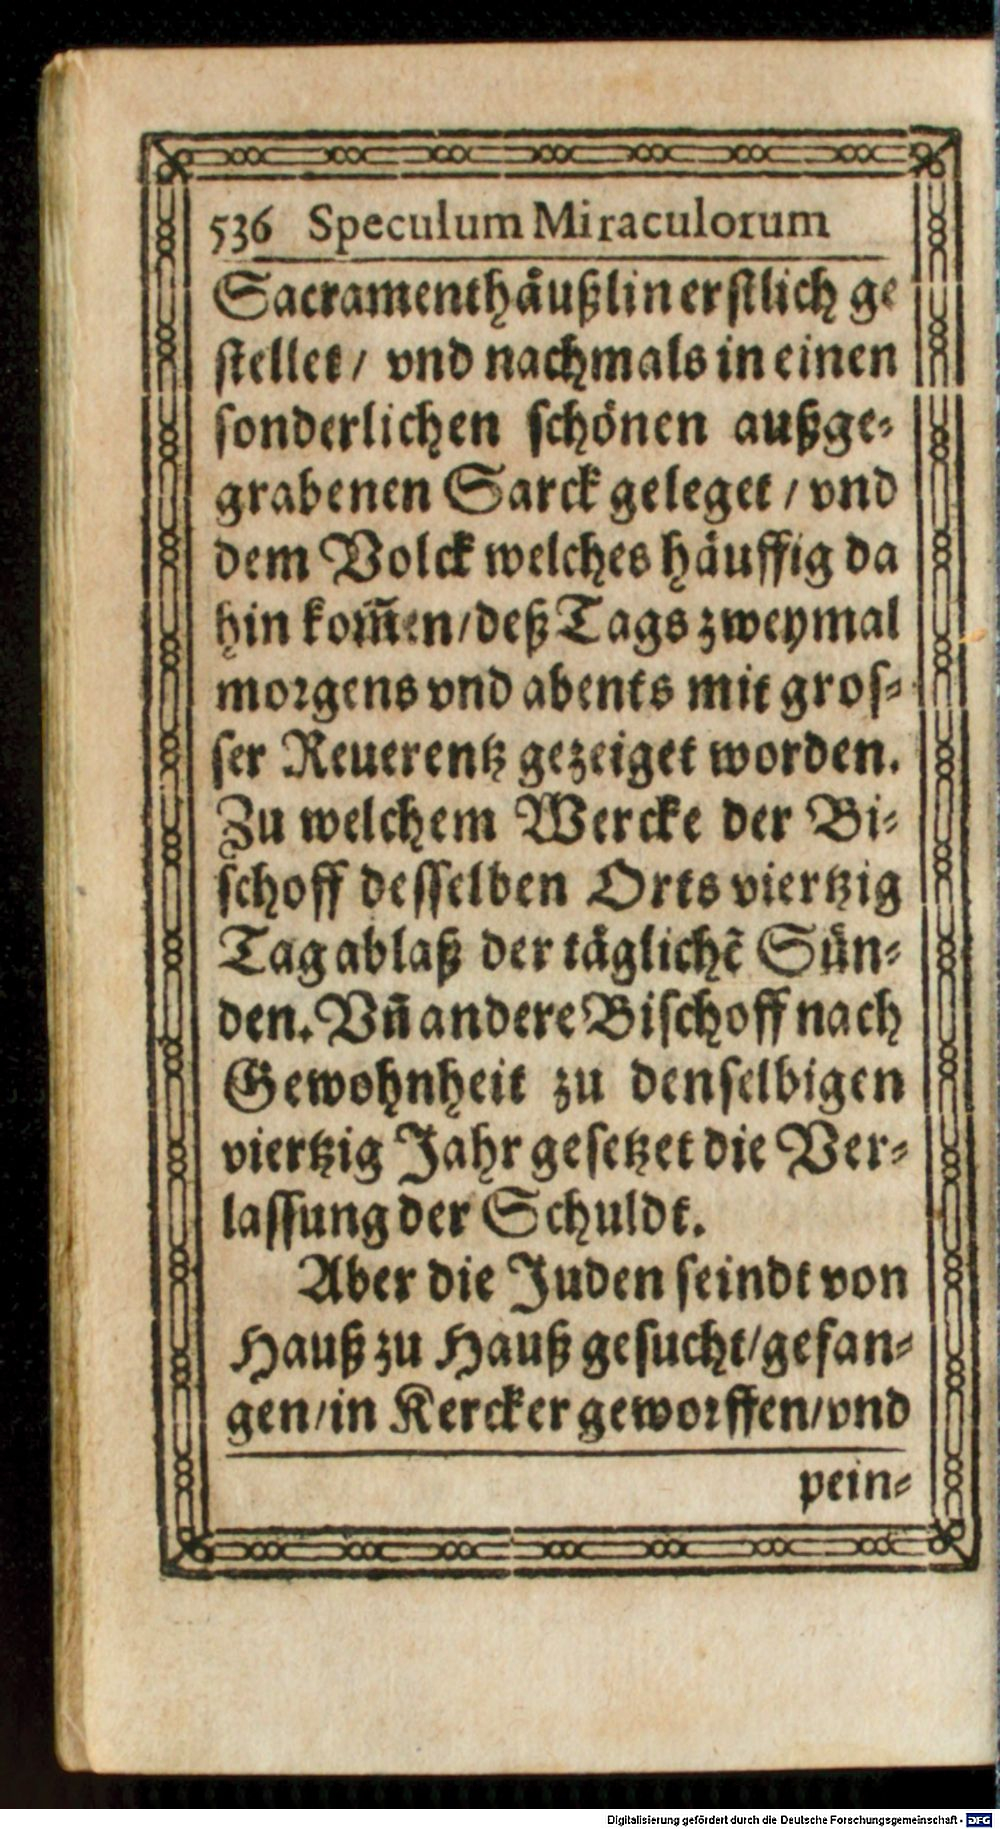 536 Speculum Miraculorum
Sacramenthäußlin erstlich ge
stellet / vnd nachmals in einen
sonderlichen schönen außge-
grabenen Sarck geleget / vnd
dem Volck welches häuffig da
hin kom̃en / deß Tags zweymal
morgens vnd abents mit gros-
ser Reuerentz gezeiget worden.
Zu welchem Wercke der Bi-
schoff desselben Orts viertzig
Tag ablaß der täglichẽ Sün-
den. Vñ andere Bischoff nach
Gewohnheit zu denselbigen
viertzig Jahr gesetzet die Ver-
lassung der Schuldt.
Aber die Juden seindt von
Hauß zu Hauß gesucht / gefan-
gen / in Kercker geworffen / vnd
pein-
Digitalisierung gefördert durch die Deutsche Forschungsgemeinschaft - DFG